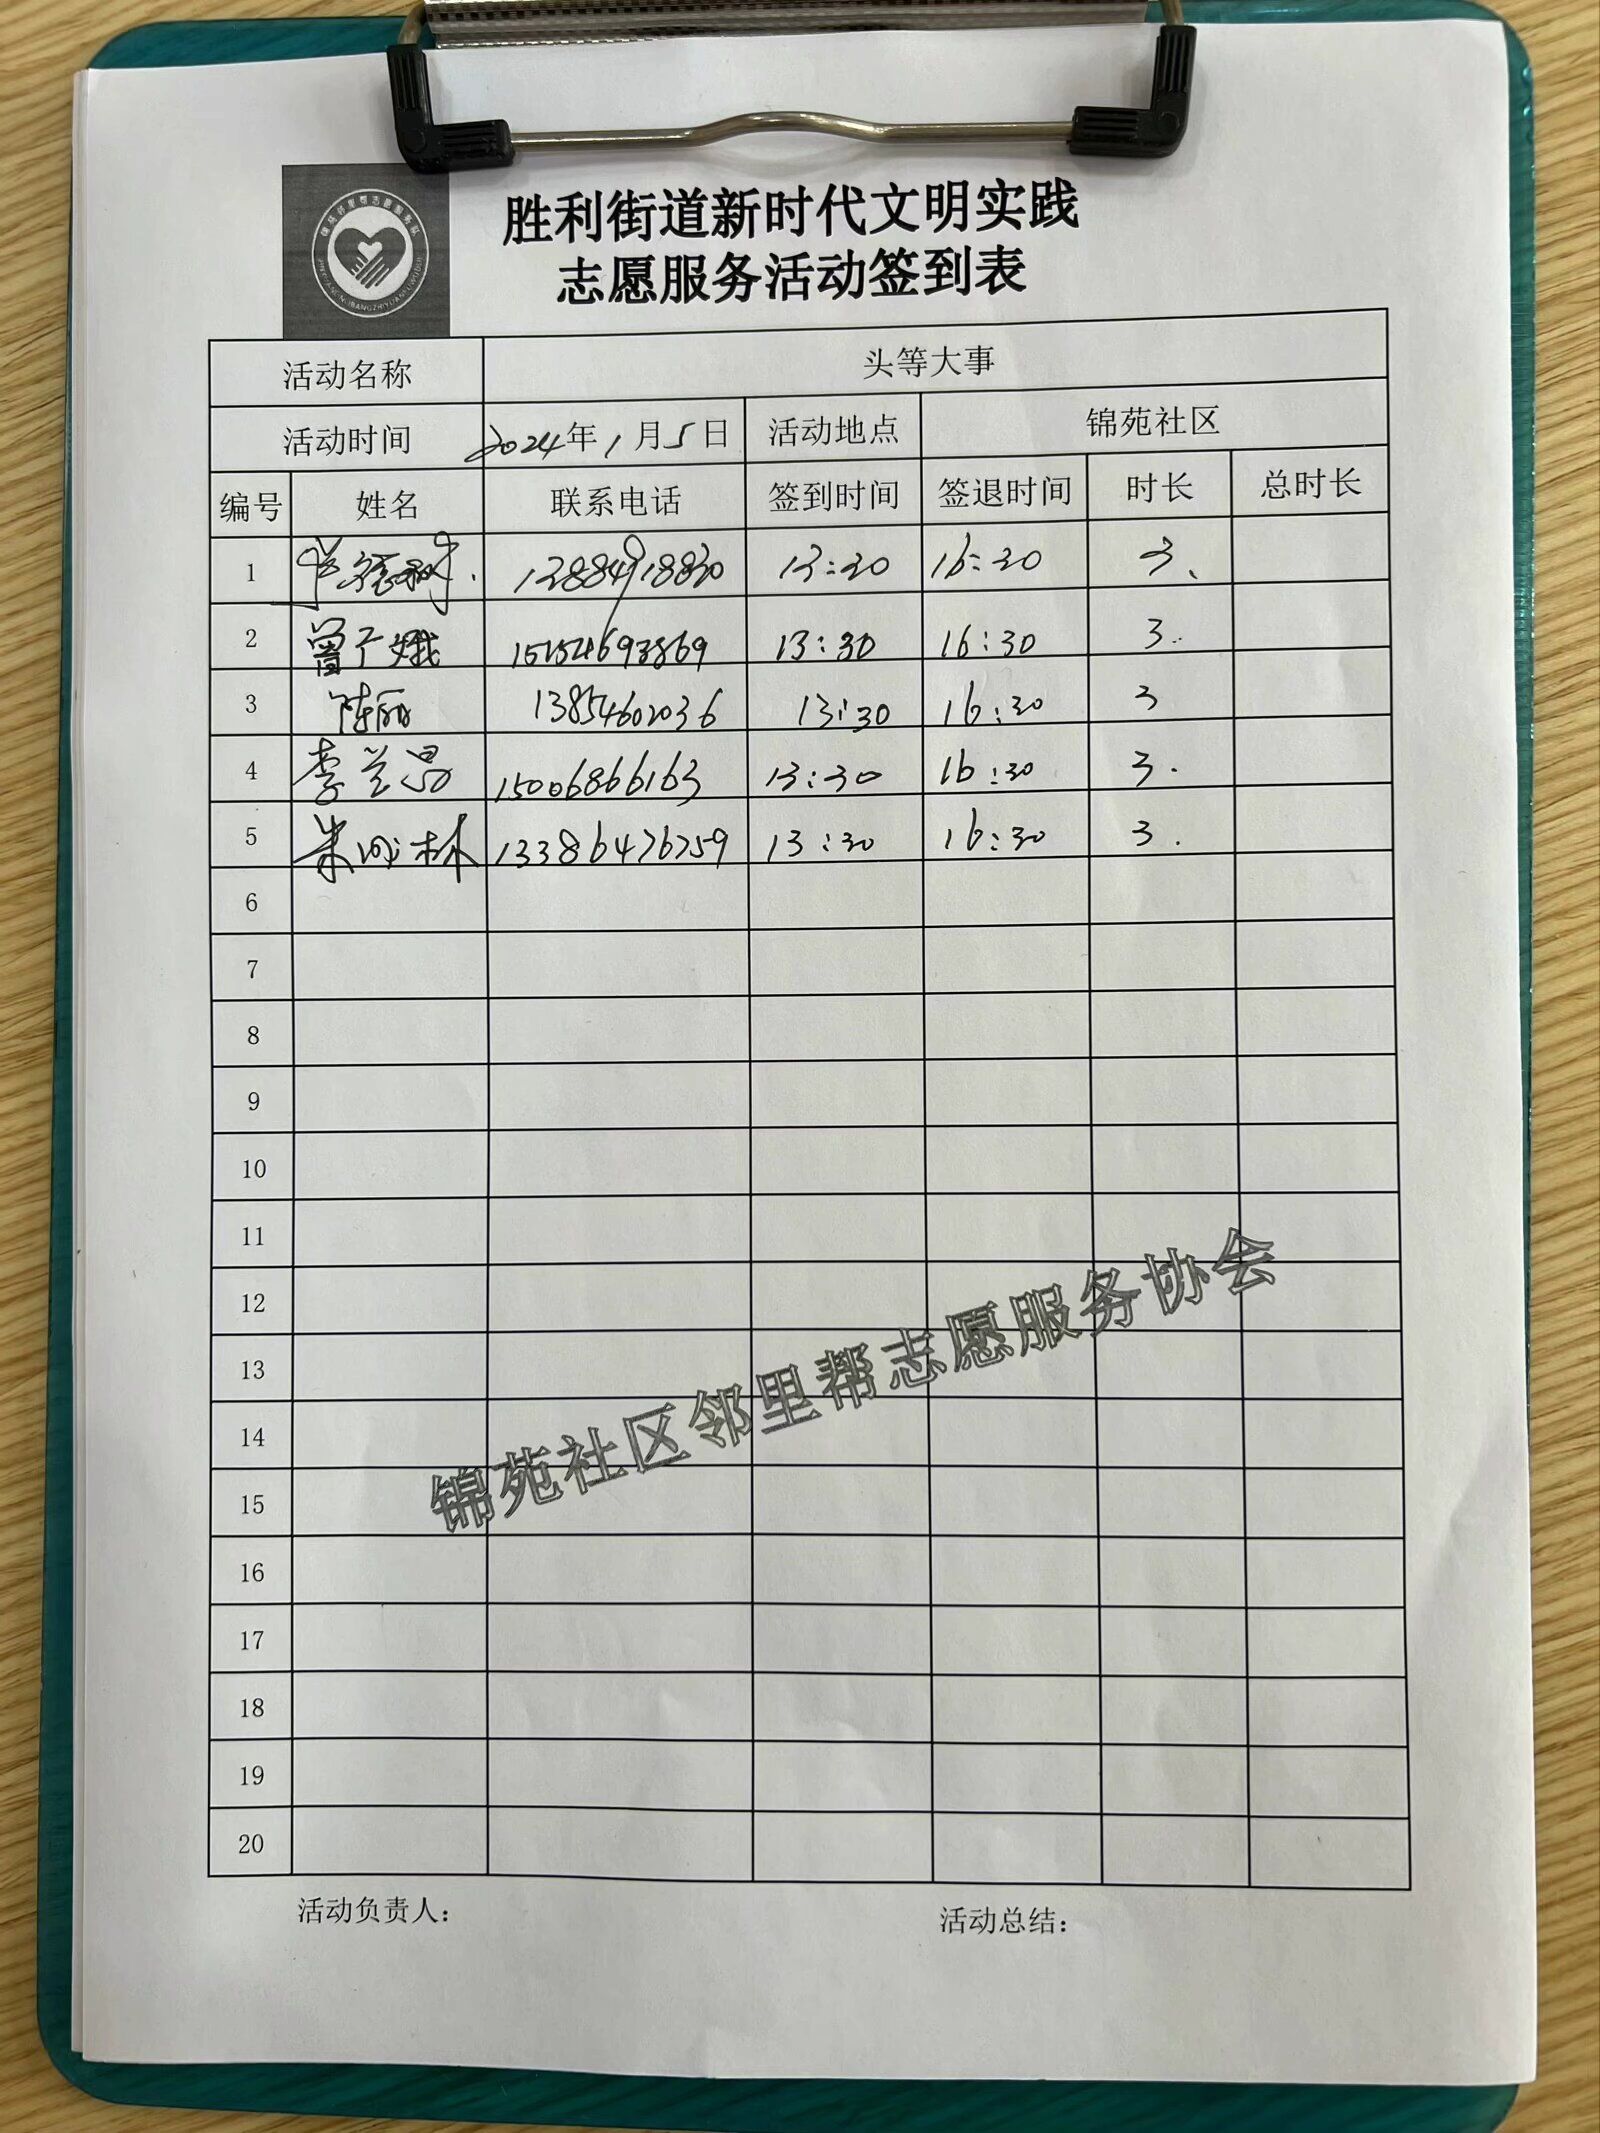 锦苑邻里帮志愿服务队
胜利街道新时代文明实践
志愿服务活动签到表
活动名称 头等大事
活动时间 2024年1月5日 活动地点 锦苑社区
编号 姓名 联系电话 签到时间 签退时间 时长 总时长
1 13:30 16:30 3
2 曾广娥 13:30 16:30 3
3 陈丽 13854602036 13:30 16:30 3
4 李兰昌 15006866163 13:30 16:30 3
5 13386476259 13:30 16:30 3
6
7
8
9
10
11
12
13
14
15
16
17
18
19
20
锦苑社区邻里帮志愿服务协会
活动负责人： 活动总结：